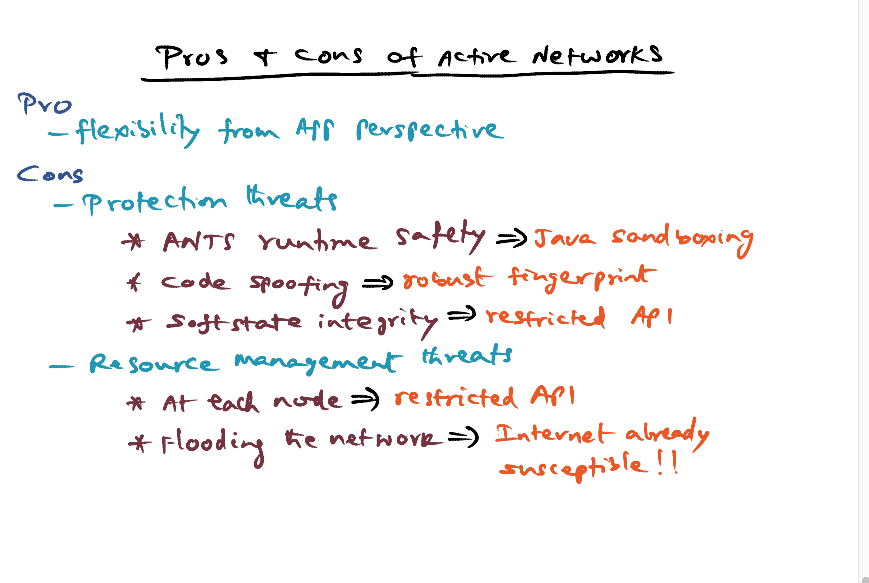 Pros + cons of Active Networks
Pro
- flexibility from App perspective
Cons
- Protection threats
* ANTS runtime safety ⇒ Java sandboxing
* Code spoofing ⇒ robust fingerprint
* Soft state integrity ⇒ restricted API
- Resource management threats
* At each node ⇒ restricted API
* Flooding the network ⇒ Internet already
susceptible!!